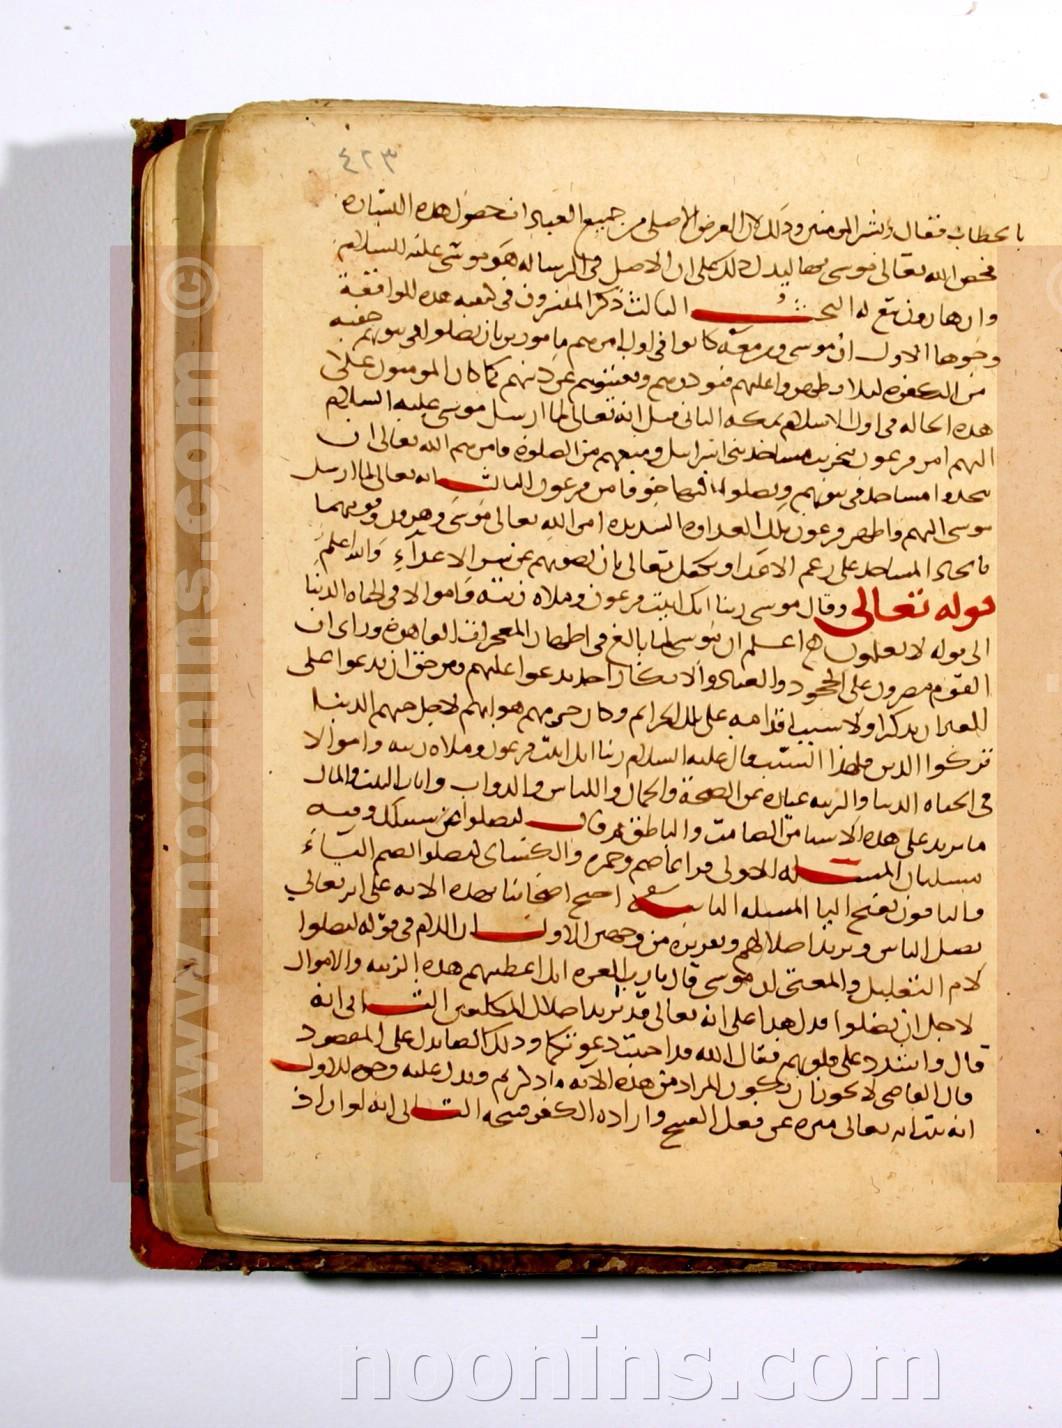 ٤٢٣
بالخطاب فقال وبشر المومنين وذلك لان الغرض الاصلى من جميع العبادات حصول هذه البشارة
فخص الله تعالى موسى بها ليدل ذلك على ان الاصل فى الرساله هو موسى عليه السلام
وان هارون تبع له البحث الثالث ذكر المفسرون فى كيفيه هذه الواقعة
وجوها الاول ان موسى ومن معه كانوا فى اول امرهم مامورين بان يصلوا فى بيوتهم خفيه
من الكفره ليلا يظهروا عليهم فيوذوهم ويفتنوهم عن دينهم كما كان المومنون على
هذه الحاله فى اول الاسلام بمكه الثانى قيل انه تعالى لما ارسل موسى عليه السلام
اليهم امر فرعون بتخريب مساجد بنى اسرايل ومنعهم من الصلوة فامرهم الله تعالى ان
يتخذوا مساجد فى بيوتهم ويصلوا فيها خوفا من فرعون الثالث انه تعالى لما ارسل
موسى اليهم واظهر فرعون تلك العداوه الشديده امر الله تعالى موسى وهرون وقومهما
باتخاذ المساجد على رغم الاعدا وتكفل تعالى بان يصونهم عن شر الاعداءِ والله اعلم
قوله تعالى وقال موسى ربنا انك اتيت فرعون وملاه زينة واموالا فى الحياه الدنيا
الى قوله لا يعلمون اعلم ان موسى لما بالغ فى اظهار المعجزات القاهرة وراى ان
القوم مصرون على الجحود والعناد والانكار اخذ يدعوا عليهم ومن حق من يدعوا على
الغير ان يذكر اولا سبب اقدامه على تلك الجرايم وكان جرمهم هو انهم لاجل حبهم الدنيا
تركوا الدين فلهذا السبب قال عليه السلام ربنا انك اتيت فرعون وملاه زينه واموالا
فى الحياه الدنيا والزينه عباره عن الصحة والجمال واللباس والدواب واثاث البيت والمال
ما يزيد على هذه الاشيا من الصامت والناطق ثم قال ليضلوا عن سبيلك وفيه
مسلتان المسئله الاولى قرا عاصم وحمزه والكساى ليضلوا بضم الياءَ
والباقون بفتح اليا المسله الثانيه احتج اصحابنا بهذه الايه على انه تعالى
يضل الناس ويريد اضلالهم وتقريره من وجهين الاول ان اللام فى قوله ليضلوا
لام التعليل والمعنى ان موسى قال يا رب العزه انك اعطيتهم هذه الزينه والاموال
لاجل ان يضلوا فدل هذا على انه تعالى قد يريد اضلال المكلفين الثانى انه
قال واشدد على قلوبهم فقال الله قد اجيبت دعوتكما وذلك ايضا يدل على المقصود
قال القاضى لا يجوز ان يكون المراد من هذه الايه ما ذكرتم ويدل عليه وجوه الاول
انه ثبت انه تعالى منزه عن فعل القبيح واراده الكفر قبيحه الثانى انه لو اراد
www.noonins.com ©
noonins.com